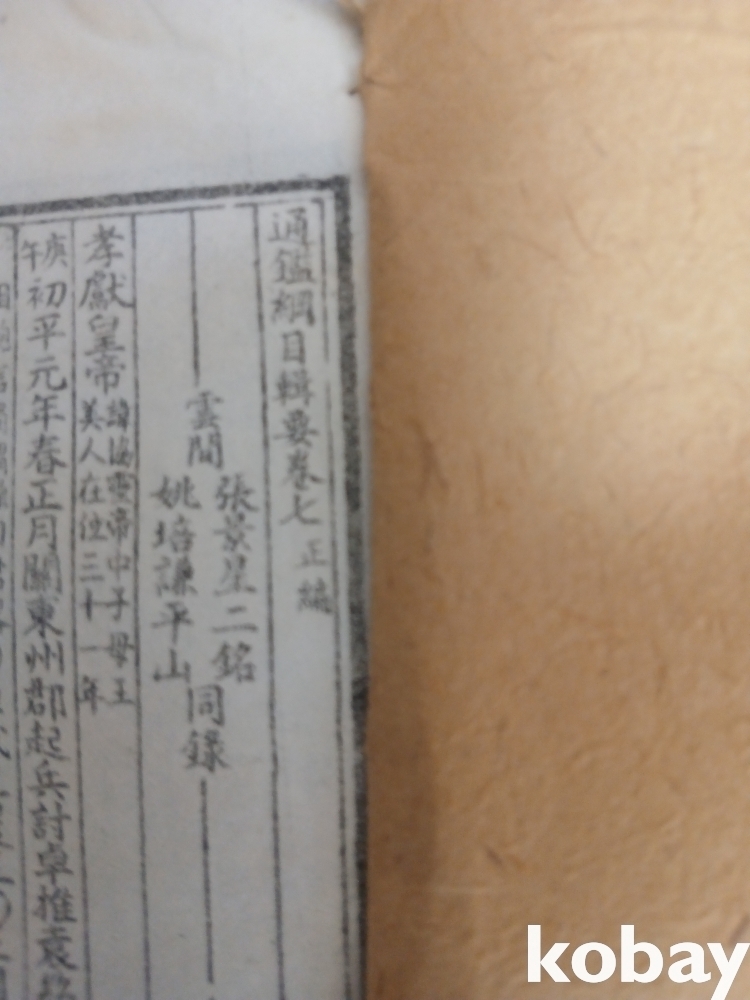 通鑑綱目輯要卷七 正編
雲間
張景星二銘
姚培謙平山
同錄
孝獻皇帝
諱協靈帝中子母王
美人在位三十一年
庚午
初平元年春正月關東州郡起兵討卓推袁
kobay